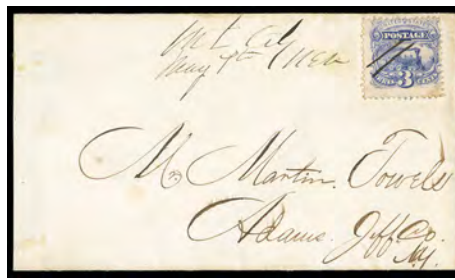 May 9th
POSTAGE
3
Mr. Martin. Towels
Adams. Jeff. Co.
N.Y.